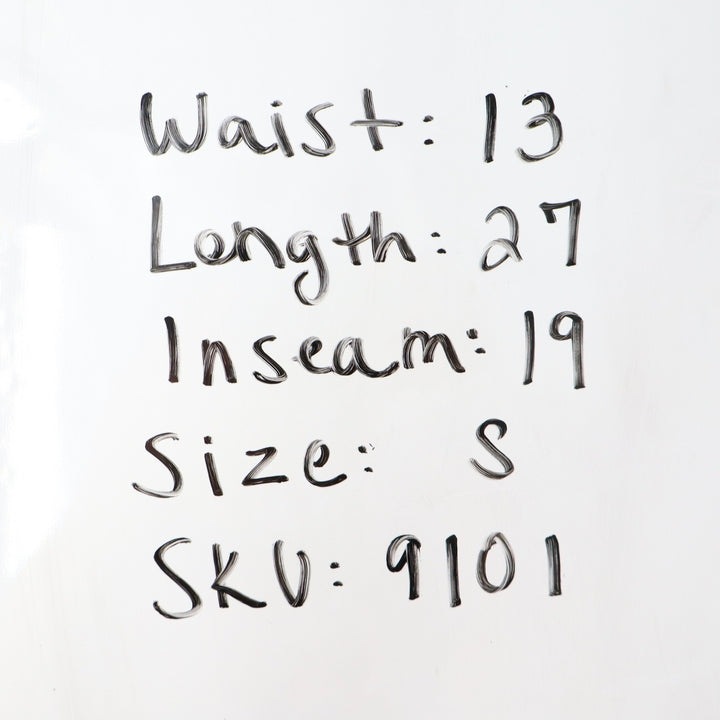 Waist: 13
Length: 27
Inseam: 19
Size: S
SKU: 9101